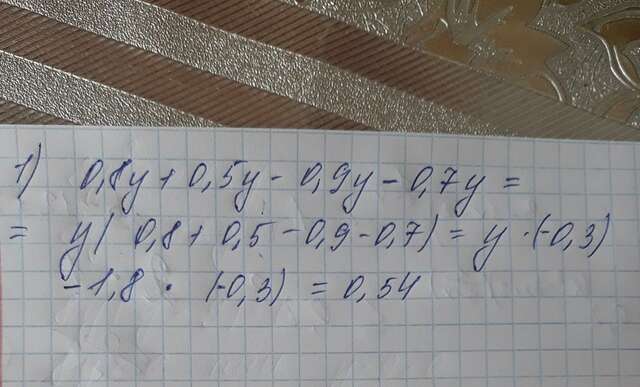 1) 0,8y + 0,5y - 0,9y - 0,7y =
= y( 0,8 + 0,5 - 0,9 - 0,7) = y · (-0,3)
-1,8 · (-0,3) = 0,54